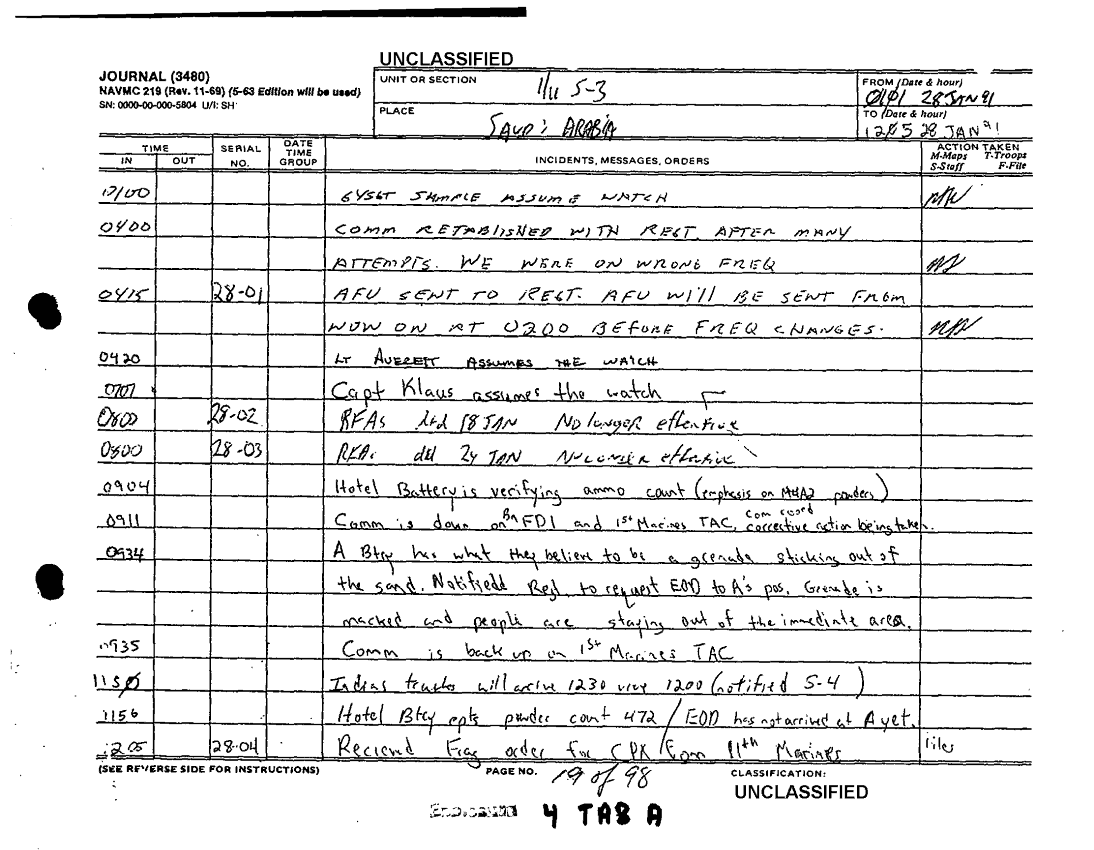 UNCLASSIFIED
JOURNAL (3480)
NAVMC 219 (Rev. 11-69) (5-63 Edition will be used)
SN: 0000-00-000-5804 U/I: SH
UNIT OR SECTION
1/11 S-3
PLACE
SAUDI ARABIA
FROM (Date & hour)
0101 28 JAN 91
TO (Date & hour)
1205 28 JAN 91
TIME
IN OUT
SERIAL NO.
DATE TIME GROUP
INCIDENTS, MESSAGES, ORDERS
ACTION TAKEN
M-Maps T-Troops
S-Staff F-File
0100 GYSGT SAMPLE ASSUME WATCH
0400 COMM RETABLISHED WITH REGT. AFTER MANY
ATTEMPTS. WE WERE ON WRONG FREQ
0415 28-01 AFU SENT TO REGT. AFU WILL BE SENT FROM
NOW ON AT 0200 BEFORE FREQ CHANGES.
0420 LT AVERETT ASSUMES THE WATCH
0701 Capt Klaus assumes the watch
0800 28-02 RFAs dtd 18 JAN No longer effective
0800 28-03 RFAs dtd 24 JAN No longer effective
0904 Hotel Battery is verifying ammo count (emphasis on M4A2 powders)
0911 Comm is down on Bn FD1 and 1st Marines TAC, corrective action being taken.
0934 A Btry has what they believe to be a grenade sticking out of
the sand. Notifiedd Regt. to request EOD to A's pos. Grenade is
marked and people are staying out of the immediate area.
0935 Comm is back up on 1st Marines TAC
1150 Indias trucks will arrive 1230 vice 1200 (notified S-4)
1156 Hotel Btry rpts powder count 472 / EOD has not arrived at A yet.
1205 28-04 Recieved Frag order for CPX from 11th Marines files
(SEE REVERSE SIDE FOR INSTRUCTIONS)
PAGE NO. 19 of 98
CLASSIFICATION:
UNCLASSIFIED
4 TAB A